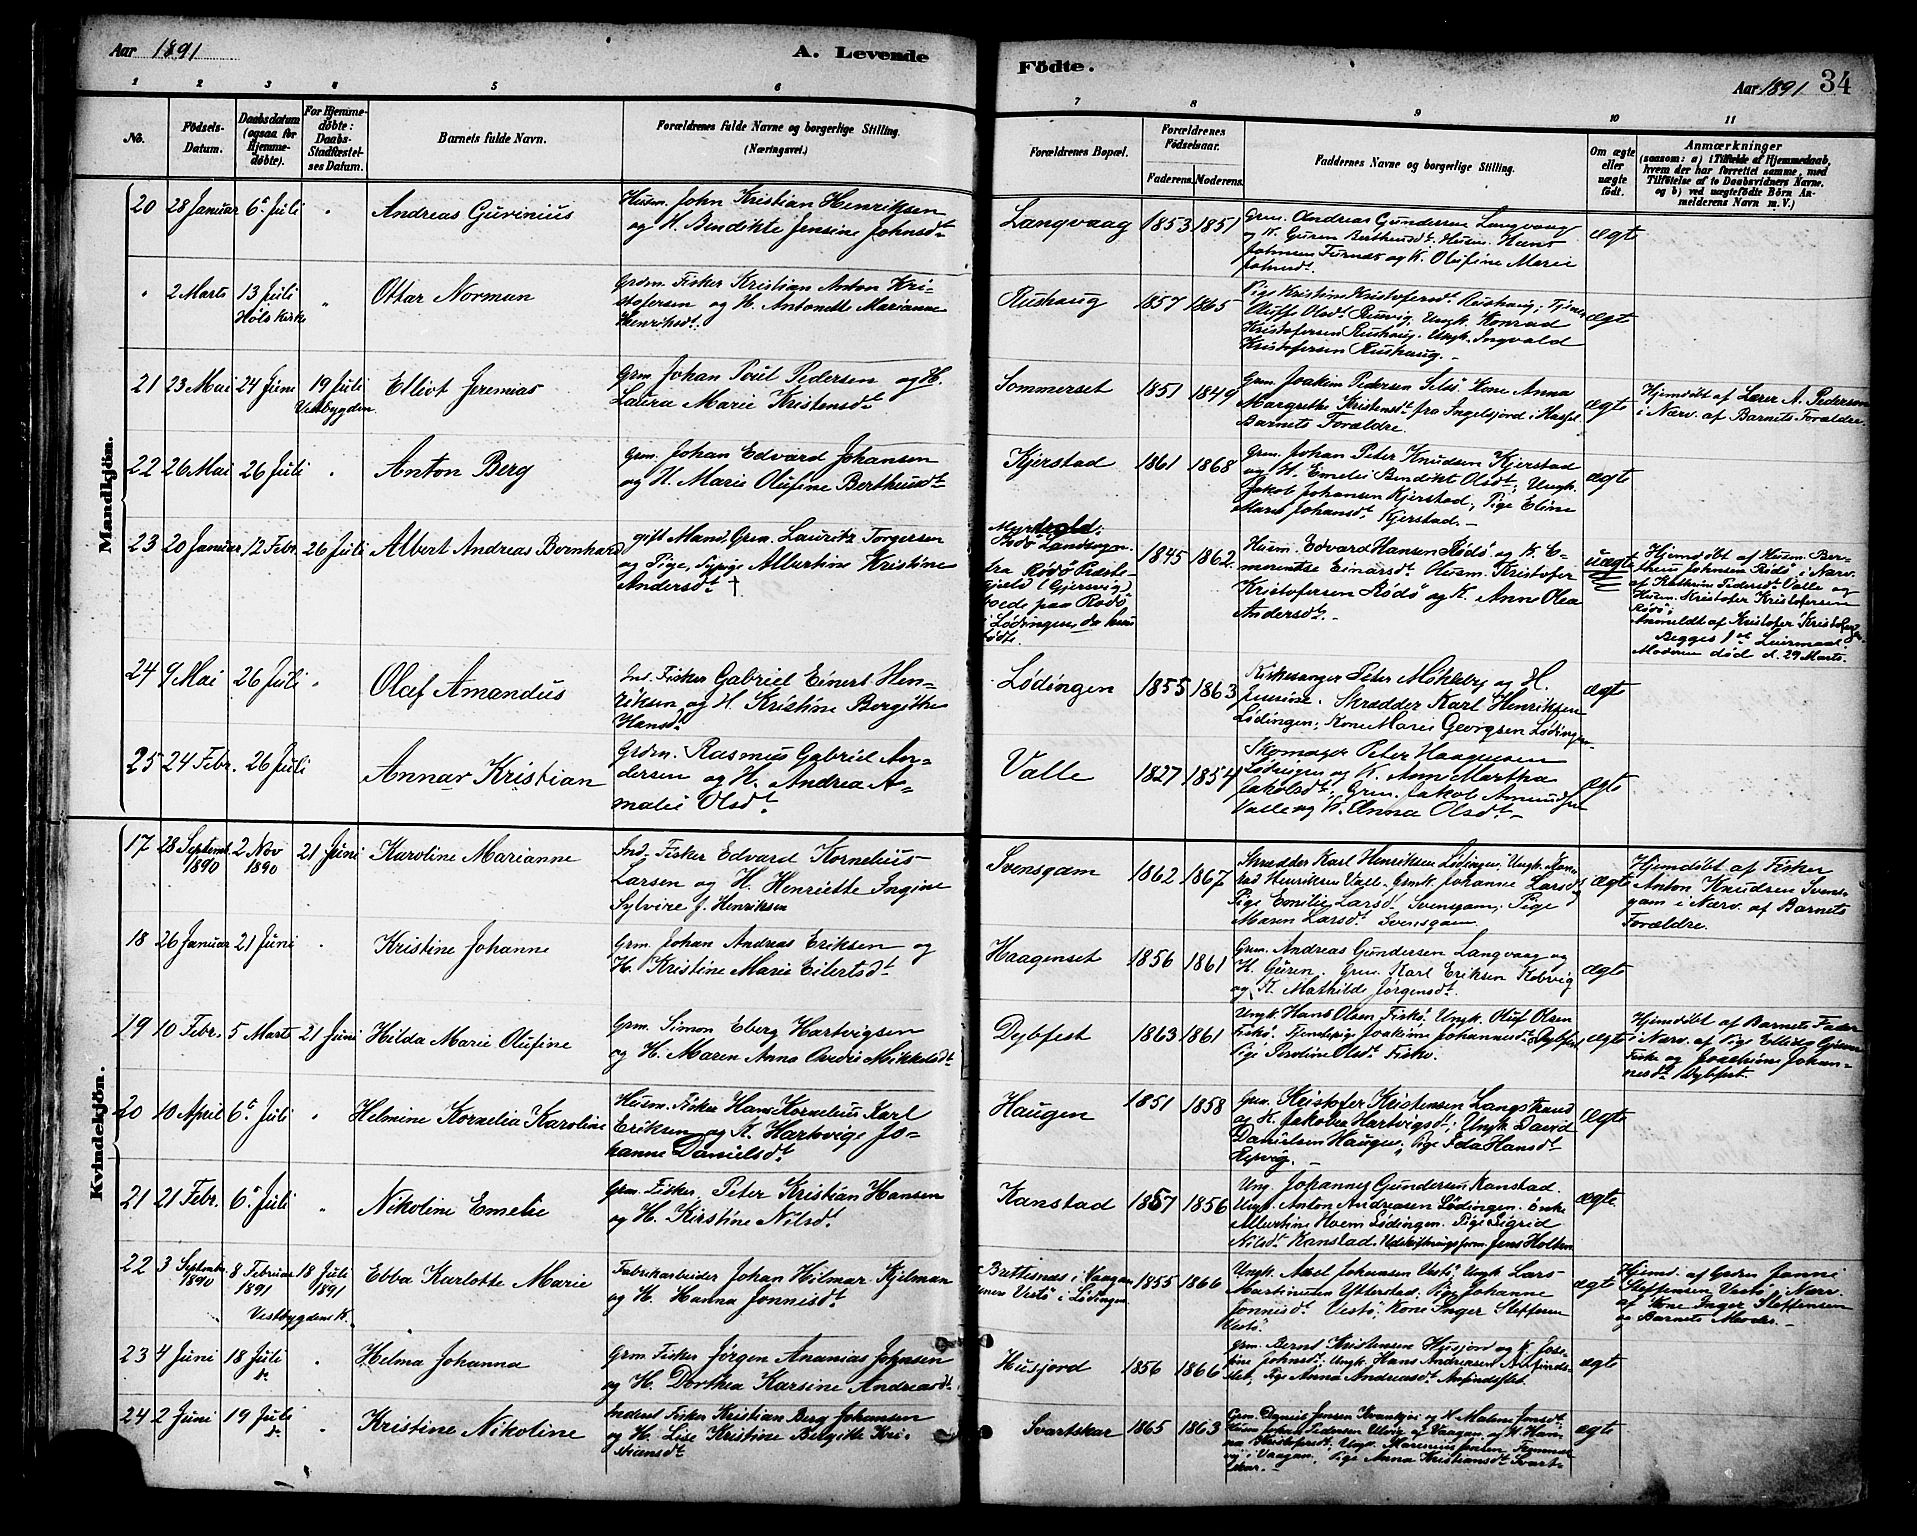 Aar 1891
A. Levende
Födte.
Aar 1891
34
1 2 3 4 5 6 7 8 9 10 11
No.
Födsels-Datum.
Daabsdatum (ogsaa for Hjemmedöbte).
For Hjemmedöbte: Daabs-Stadfæstelses Datum.
Barnets fulde Navn.
Forældrenes fulde Navne og borgerlige Stilling. (Næringsvei.)
Forældrenes Bopæl.
Forældrenes Födselsaar.
Faderens. Moderens.
Faddernes Navne og borgerlige Stilling.
Om ægte eller uægte födt.
Anmærkninger
(saasom: a) i Tilfælde af Hjemmedaab, hvem der har forrettet samme, med Tilföielse af to Daabsvidners Navne, og b) ved uægtefödte Börn Anmelderens Navn m. V.)
Mandkjön.
20 28 Januar 6te Juli " Andreas Guvinius
Husm. John Kristian Henriksen
og H. Bendikte Jensine Johnsdt
Langvaag 1853 1851
Grm. Andreas Gundersen Langvaag
og K. Guren Bertheusdt. Husm. Hans
Johnsen Furnes og K. Olufine Marie
Johnsdt.
ægte
" 2 Marts 13 Juli Hols Kirke " Ottar Norman
Grdm. Fisker Kristian Anton Kri-
stofersen og H. Antonette Marianne
Henriksdt.
Rushaug 1857 1865
Pige Kristine Kristofersdt. Rushaug, Tjener
Oluffe Olsdt Rusvig, Ungk. Konrad
Kristofersen Rushaug. Ungk. Ingvald
Kristofersen Rushaug. -
ægte
21 23 Mai 24 Juni 19 Juli Vestbygden Elliot Jeremias
Grm. Johan Poul Pedersen og H.
Laura Marie Kristensdt
Sommerset 1851 1849
Grm. Joakim Pedersen Kone Anna
Margrethe Kristensdt fra Ingelsfjord i Hasfel
Barnets Forældre.
ægte
Hjemdøbt af Lærer A. Pedersen
i Nærv. af Barnets Forældre.
22 26 Mai 26 Juli " Anton Berg
Grm. Johan Edvard Johansen
og H. Marie Olufine Bertheusdt
Kjerstad 1861 1868
Grm. Johan Peter Knudsen Kjerstad
og H. Emelie Bendikte Olsdt; Ungk.
Jakob Johansen Kjerstad, Pige Eline
Marie Johansdt, Kjerstad. -
ægte
23 20 Januar 12 Febr. 26 Juli Albert Andreas Bernhard
gift Mand, Grm. Lauritz Torgersen
og Pige, Sypige Albertine Kristine
Andersdt †
Rødø Landsogn
fra Rødø Præste-
gjeld (Gjersvig)
boede paa Rødø
i Lødingen, da hun
fødte.
1845 1862
Husm. Edvard Hansen Rødø og K. E-
merentse Einarsdt. Husm. Kristofer
Kristofersen Rødø og K. Anne Olea
Andersdt. -
uægte
Hjemdøbt af Husm. Ber-
theus Johnsen Rødø i Nærv.
af Kathrine Pedersdt Valle og
Husm. Kristofer Kristofersen
Rødø;
Anmeldt af Kristofer Kristofersen.
Begges 1ste Leiermaal.
Moderen død d. 29 Marts.
24 9 Mai 26 Juli " Olaf Amandus
Ind. Fisker Gabriel Einert Hen-
riksen og H. Kristine Bergithe
Hansdt
Lødingen 1855 1863
Kirkesanger Peter Møkleby og H.
Jensine. Skrædder Karl Henriksen
Lødingen, Kone Maries Georgsen Lødingen.
ægte
25 24 Febr. 26 Juli Annar Kristian
Grdm. Rasmus Gabriel An-
dersen og H. Andrea A-
malie Olsdt
Valle 1827 1854
Skomager Peter Haagensen
Lødingen og K. Ane Martha
Jakobsdt, Grm. Jakob Amundsen
Valle og K. Anna Olsdt -
ægte
Kvindekjön.
17 28 Septemb. 1890 2 Nov 1890 21 Juni Karoline Marianne
Ind. Fisker Edvard Kornelius
Larsen og H. Henriette Ingine
Sylvire f. Henriksen
Svensgam 1862 1867
Skrædder Karl Henriksen Lødingen. Ungk. Kon-
rad Henriksen Valle. Grmk. Johanne Larsdt,
Pige Emilie Larsdt Svensgam, Pige
Maren Larsdt Svensgam
ægte
Hjemdøbt af Fisker
Anton Knudsen Svens-
gam i Nærv. af Barnets
Forældre.
18 26 Januar 21 Juni " Kristine Johanne
Grm. Johan Andreas Eriksen og
H. Kristine Marie Eilertsdt
Haagenset 1856 1861
Grm. Andreas Gundersen Langvaag og
H. Guren. Grm. Karl Eriksen Kobvig
og K. Mathilde Jørgensdt.
ægte
19 10 Febr. 5 Marts 21 Juni Hilda Marie Olufine
Grm. Simon Eberg Hartvigsen
og H. Maren Anna Ovedie Mikkelsdt
Dybfest 1863 1861
Ungk. Hans Olsen Fiskø, Ungk. Oluf Olsen
Fiskø. Tjenstepig. Joakime Johannesdt, Dybfest,
Pige Petrine Olsdt Fiskø.
ægte
Hjemdøbt af Barnets Fader
i Nærv. af Pige
Fiskø og Joachime Johan-
nesdt Dybfest.
20 10 April 6te Juli " Helmine Kornelia Karoline
Husm. Fisker Hans Kornelius Karl
Eriksen og K. Hartvige Jo-
hanne Danielsdt
Haugen 1851 1858
Grm. Kristofer Kristensen Langstrand
og K. Jakobea Hartvigsdt; Ungk. David
Danielsen Haugen, Pige Eda Hansdt
Repvig. -
Ægte
21 21 Febr. 6te Juli " Nikoline Emelie
Grm. Fisker, Peter Kristian Hansen
og H. Kirstine Nilsdt
Kanstad 1857 1856
Ung. Johannes Gundersen Kanstad.
Ungk. Anton Andreasen Lødingen. Enke
Albertine Hveem Lødingen. Pige Sigrid
Nilsdt Kanstad. Udskiftningsform. Jens Holten
ægte
22 3 Septembr. 1890 8 Februar 1891 18 Juli 1891 Vestbygdens K. Ebba Karlotte Marie
Fabrikarbeider Johan Hilmar Kjelman
og H. Hanna Jonnisdt
Brettesnæs i Vaagan
Vestø i Lødingen
1855 1866
Ungk. Axel Johansen Vestø, Ungk. Lars
Martinusen Ytterstad. Pige Johanne
Jonnisdt Vestø, Kone Inger Steffensen
Vestø.
ægte
Hjemd. af Grdm. Jonni
Steffensen Vestø, i Nærv.
af Kone Inger Steffensen
og Barnets Moder. -
23 4 Juni 18 Juli d. " Helma Johanna
Grm Fisker Jørgen Ananias Johnsen
og H. Dorthea Karsine Andreasdt
Husjord 1856 1866
Grm. Bernt Kristensen Husjord og K. Jose-
fine Johnsdt; Ungk. Hans Andersen Anfinds-
slet, Pige Anna Andreasdt Anfindsslet.
ægte
24 2 Juni 19 Juli d. " Kristine Nikoline
Inderst Fisker Kristian Berg Johansen
og H. Lise Kristine Bergitte Kri-
stiansdt
Svartskar 1865 1863
Grm. Jensen og H. Malene Jensdt.
Husm Johan Pedersen Ulvig af Vaagan og H. Han-
na Kristofersdt. Ungk. Marinius Jensen
i Vaagan, Pige Anna Kristiansdt Svart-
skar. -
ægte